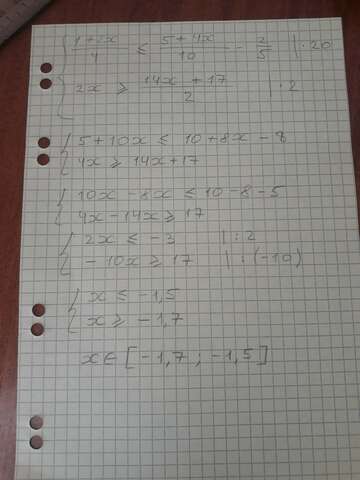 { (1+2x)/4 ≤ (5+4x)/10 - 2/5 | · 20
{ 2x ≥ (14x + 17)/2 | · 2
{ 5 + 10x ≤ 10 + 8x - 8
{ 4x ≥ 14x + 17
{ 10x - 8x ≤ 10 - 8 - 5
{ 4x - 14x ≥ 17
{ 2x ≤ - 3 | : 2
{ - 10x ≥ 17 | : (-10)
{ x ≤ - 1,5
{ x ≥ - 1,7
x ∈ [ - 1,7 ; - 1,5 ]